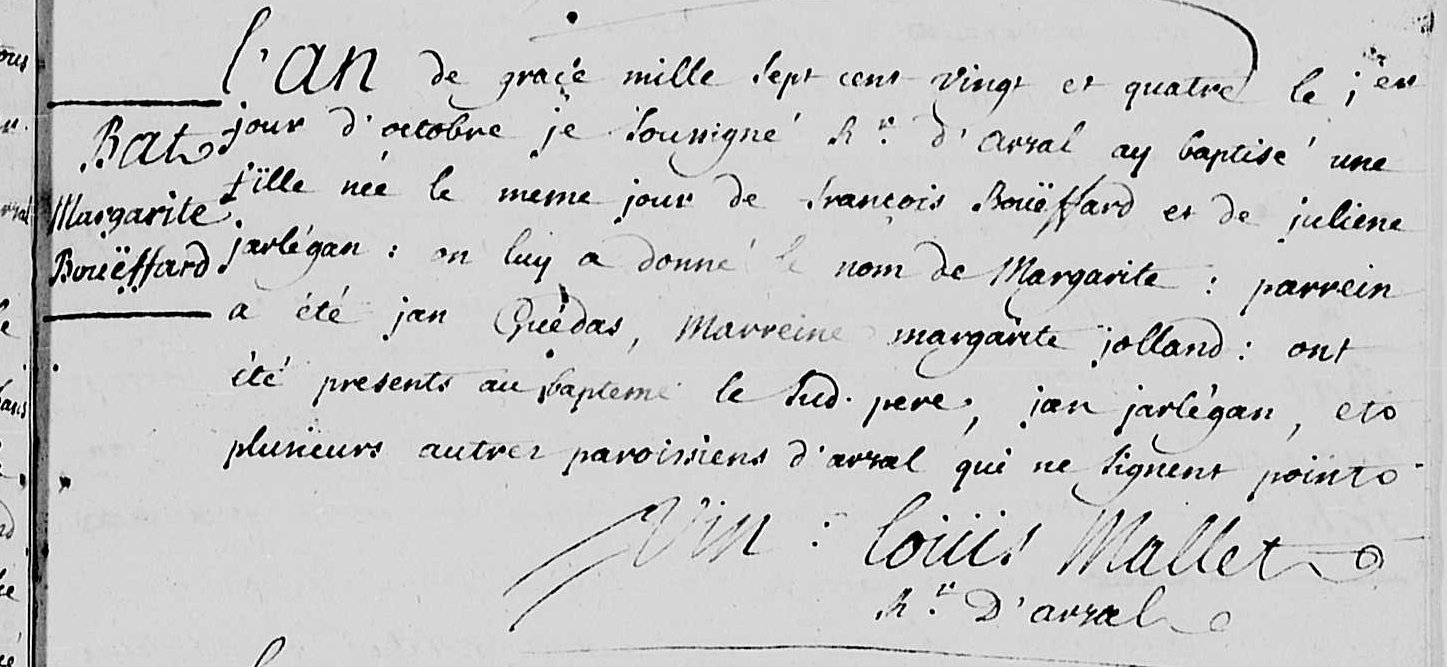 l'an de grace mille sept cent vingt et quatre le jer
Bat
jour d'octobre je soussigné Rr. d'arzal ay baptisé une
Margarite
fille née le meme jour de françois Bouëffard et de juliene
Bouëffard
jarlégan : on luy a donné le nom de Margarite : parrein
a été jan Guédas, Marreine margarite jolland : ont
été presents au bapteme le sud. pere, jan jarlégan, et
plusieurs autres paroissiens d'arzal qui ne signent point
Vin : Louis Mallet
Rr. D'arzal